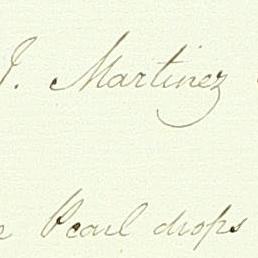 J. Martinez
e Pearl drops